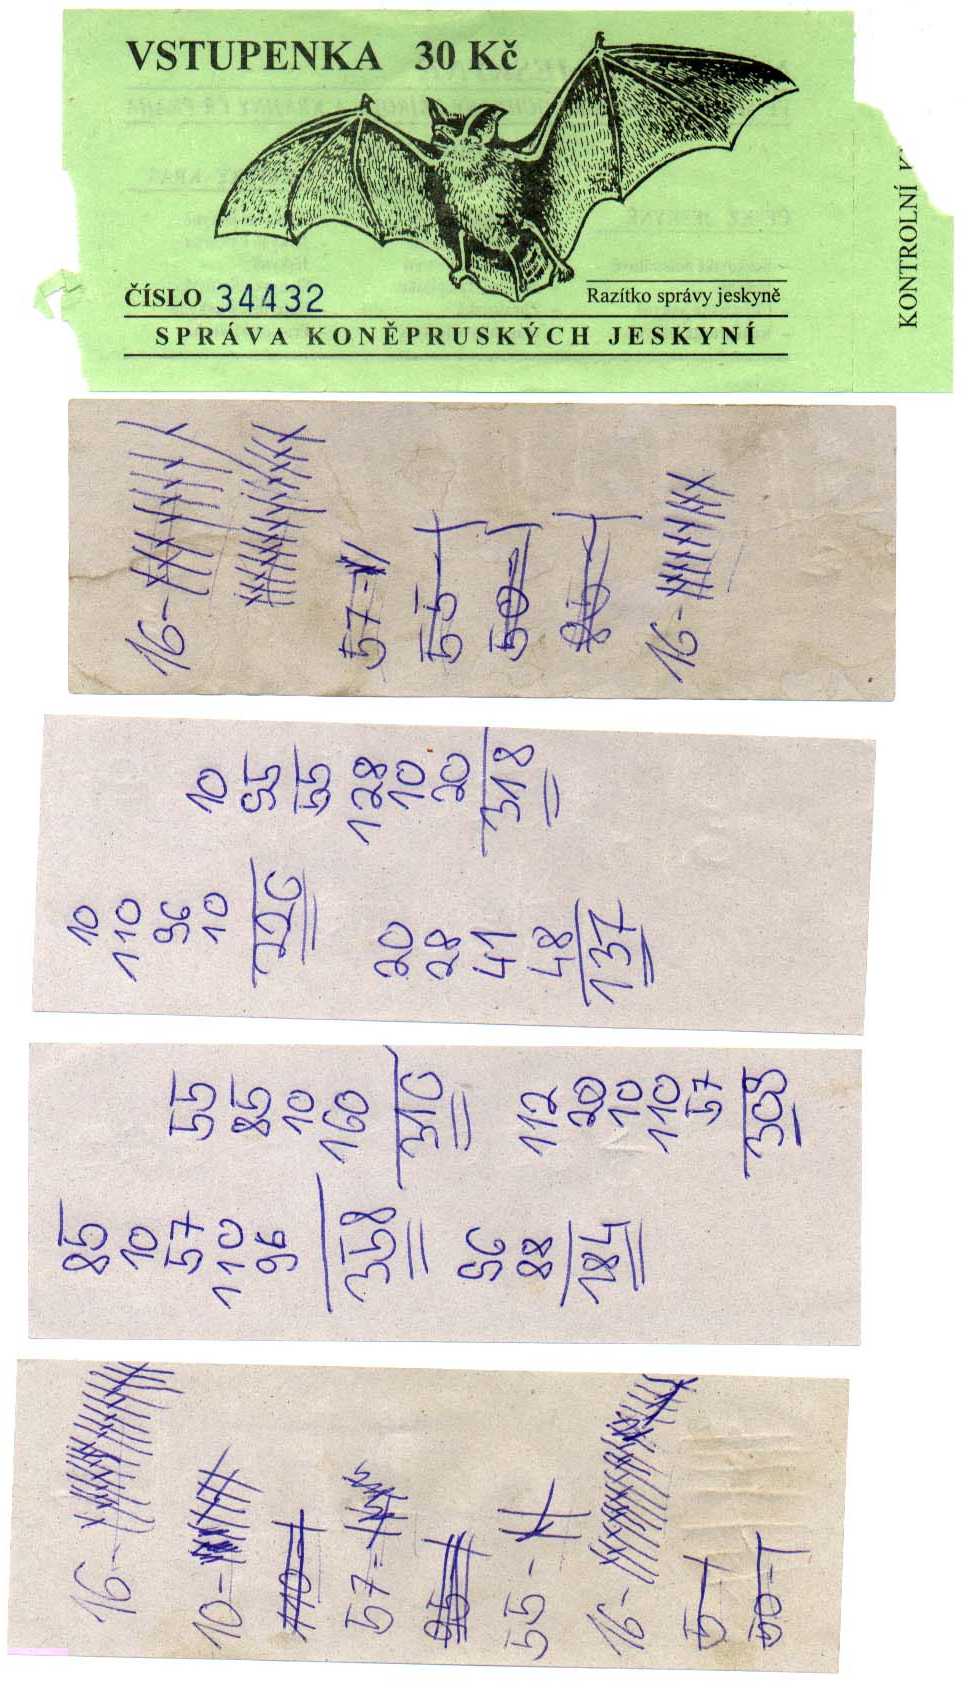 VSTUPENKA 30 Kč
ČÍSLO 34432
Razítko správy jeskyně
SPRÁVA KONĚPRUSKÝCH JESKYNÍ
KONTROLNÍ
16-
57-
55-
50-
85-
16-
10
55
55
128
10
20
318
10
110
96
10
226
20
28
41
48
137
55
85
10
160
310
112
20
10
110
57
308
85
10
57
110
96
358
96
88
184
16-
10-
110-
57=
85-
55-
16-
5-
50-